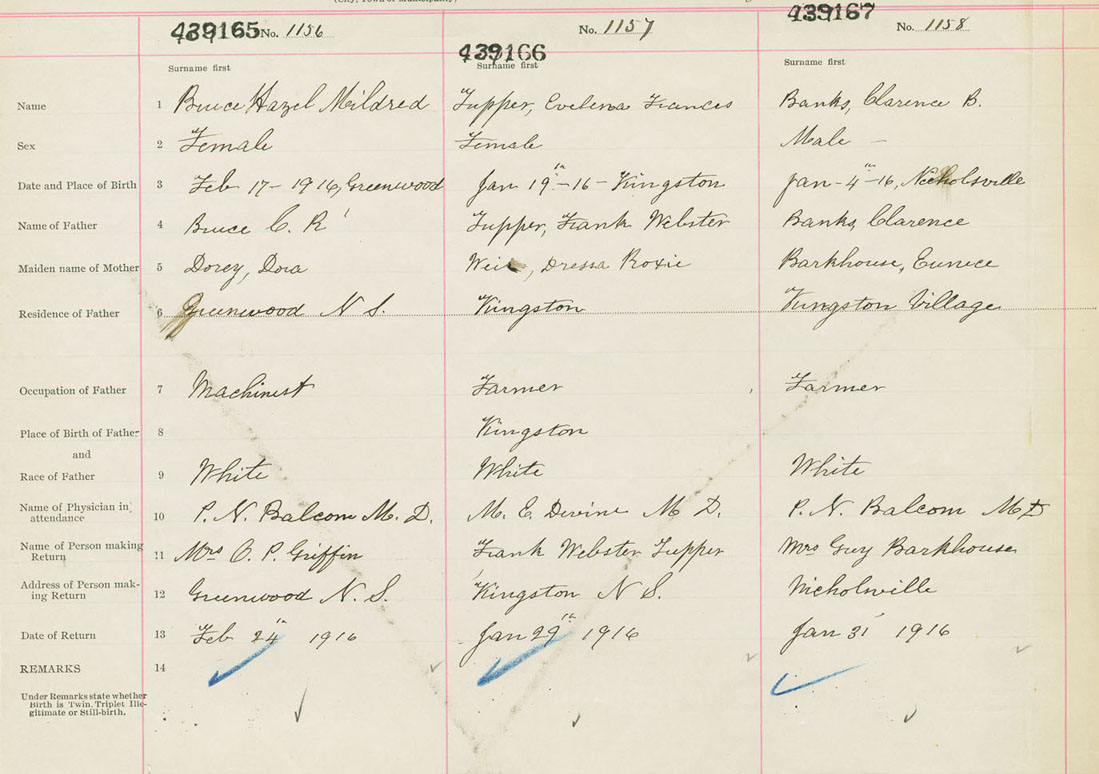 (City, Town or Municipality)
439165 No. 1156 439166 No. 1157 439167 No. 1158
Surname first Surname first Surname first
Name 1 Bruce Hazel Mildred Tupper, Evelena Frances Banks, Clarence B.
Sex 2 Female Female Male –
Date and Place of Birth 3 Feb 17 – 1916, Greenwood Jan 19th – 16 – Kingston Jan – 4th – 16, Nicholsville
Name of Father 4 Bruce C. R Tupper, Frank Webster Banks, Clarence
Maiden name of Mother 5 Dorey, Dora , Dressa Roxie Barkhouse, Eunice
Residence of Father 6 Greenwood N S. Kingston Kingston Village
Occupation of Father 7 Machinist Farmer Farmer
Place of Birth of Father 8 Kingston
and
Race of Father 9 White White White
Name of Physician in attendance 10 P. N. Balcom M. D. M. E. Devine M D. P. N. Balcom M D
Name of Person making Return 11 Mrs O. P. Griffin Frank Webster Tupper Mrs Guy Barkhouse
Address of Person mak-ing Return 12 Greenwood N. S. Kingston N S. Nicholville
Date of Return 13 Feb 24th 1916 Jan 29th 1916 Jan 31 1916
REMARKS 14
Under Remarks state whether
Birth is Twin. Triplet Ille-
gitimate or Still-birth.